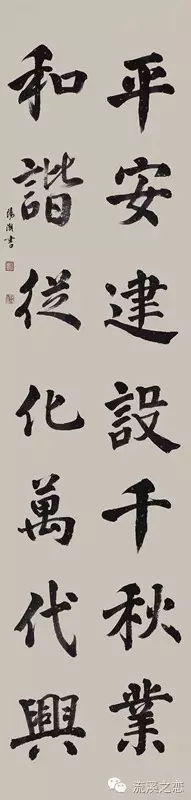 平安建設千秋業
和諧從化萬代興
流溪之恋